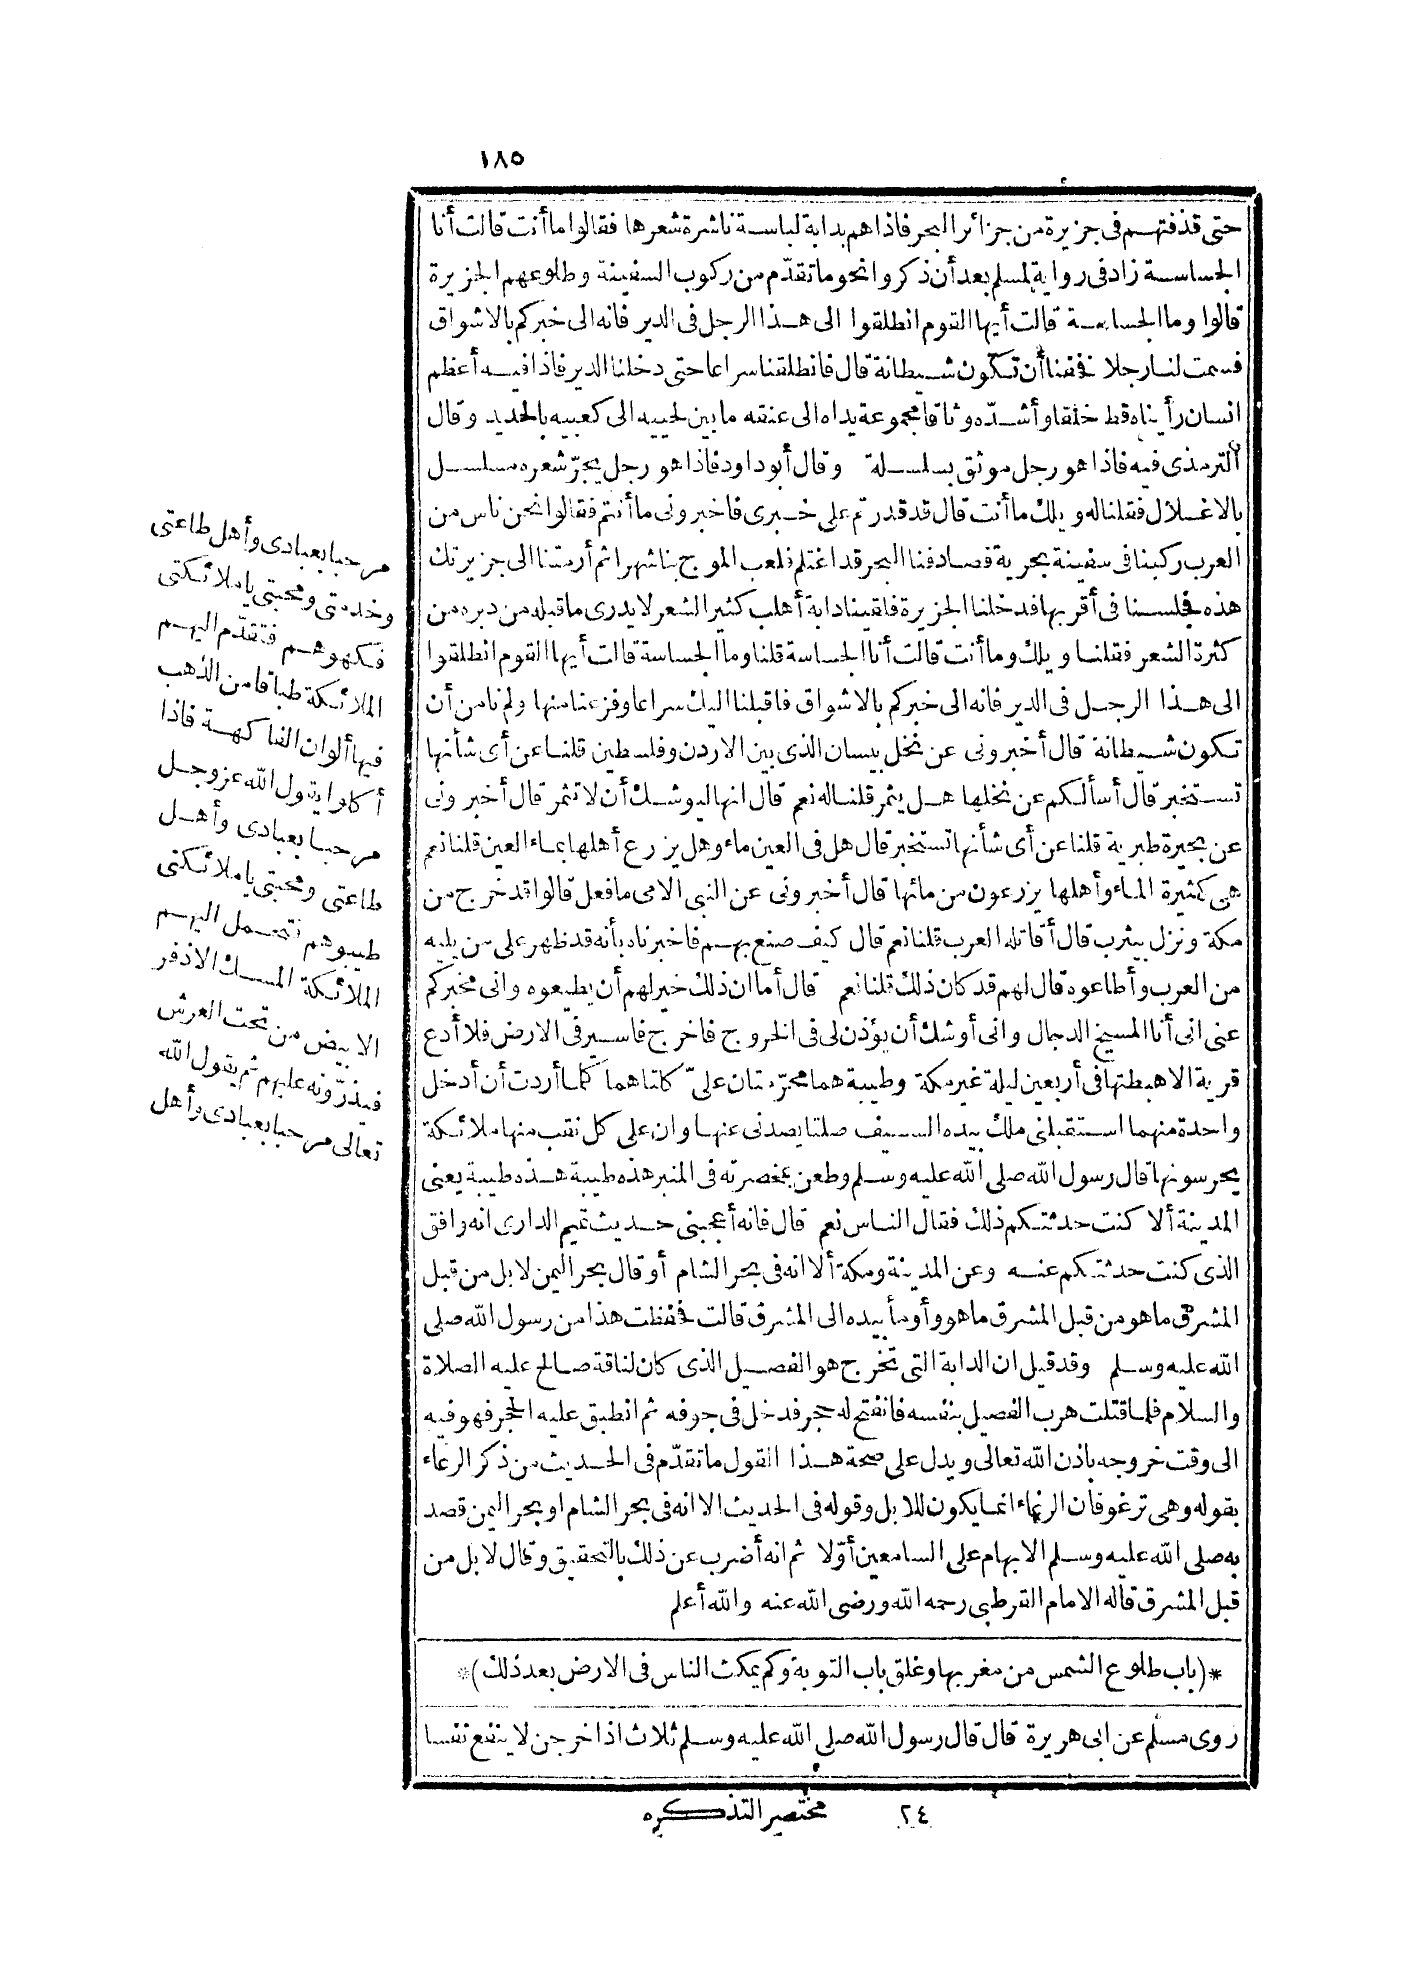 ١٨٥
حتى قذفتهم فى جزيرة من جزائر البحر فاذا هم بدابة لباسة ناشرة شعرها فقالوا ما أنت قالت أنا
الجساسة زاد فى رواية لمسلم بعد أن ذكروا نحو ما تقدّم من ركوب السفينة وطلوعهم الجزيرة
قالوا وما الجساسة قالت أيها القوم انطلقوا الى هذا الرجل فى الدير فانه الى خبركم بالاشواق
فسمت لنا رجلا فخفنا أن تكون شيطانة قال فانطلقنا سراعا حتى دخلنا الدير فاذا فيه أعظم
انسان رأيناه قط خلقا وأشدّه وثاقا مجموعة يداه الى عنقه ما بين لحييه الى كعبيه بالحديد وقال
الترمذى فيه فاذا هو رجل موثق بسلسلة وقال أبو داود فاذا هو رجل يجرّ شعره مسلسل
بالاغلال فقلنا له ويلك ما أنت قال قد قدرتم على خبرى فاخبرونى ما أنتم فقالوا نحن ناس من
العرب ركبنا فى سفينة بحرية فصادفنا البحر قد اغتلم فلعب الموج بنا شهرا ثم أرمتنا الى جزيرتك
هذه فجلسنا فى أقربها فدخلنا الجزيرة فلقينا دابة أهلب كثير الشعر لا يدرى ما قبله من دبره من
كثرة الشعر فقلنا ويلك وما أنت قالت أنا الجساسة قلنا وما الجساسة قالت أيها القوم انطلقوا
الى هذا الرجل فى الدير فانه الى خبركم بالاشواق فاقبلنا اليك سراعا وفزعنا منها ولم نامن أن
تكون شيطانة قال أخبرونى عن نخل بيسان الذى بين الاردن وفلسطين قلنا عن أى شأنها
تستخبر قال أسألكم عن نخلها هل يثمر قلنا له نعم قال انها ليوشك أن لا تثمر قال أخبرونى
عن بحيرة طبرية قلنا عن أى شأنها تستخبر قال هل فى العين ماء وهل يزرع أهلها بماء العين قلنا نعم
هى كثيرة الماء وأهلها يزرعون من مائها قال أخبرونى عن النبى الامى ما فعل قالوا قد خرج من
مكة ونزل بيثرب قال أقاتله العرب قلنا نعم قال كيف صنع بهم فاخبرناه بأنه قد ظهر على من يليه
من العرب وأطاعوه قال لهم قد كان ذلك قلنا نعم قال أما ان ذلك خير لهم أن يطيعوه وانى مخبركم
عنى انى أنا المسيخ الدجال وانى أوشك أن يؤذن لى فى الخروج فاخرج فاسير فى الارض فلا أدع
قرية الا هبطتها فى أربعين ليلة غير مكة وطيبة هما محرّمتان علىّ كلتاهما كلما أردت أن أدخل
واحدة منهما استقبلنى ملك بيده السيف صلتا يصدنى عنها وان على كل نقب منها ملائكة
يحرسونها قال رسول الله صلى الله عليه وسلم وطعن بمخصرته فى المنبر هذه طيبة هذه طيبة يعنى
المدينة ألا كنت حدثتكم ذلك فقال الناس نعم قال فانه أعجبنى حديث تميم الدارى انه وافق
الذى كنت حدثتكم عنه وعن المدينة ومكة ألا انه فى بحر الشام أو قال بحر اليمن لا بل من قبل
المشرق ما هو من قبل المشرق ما هو وأومأ بيده الى المشرق قالت فحفظت هذا من رسول الله صلى
الله عليه وسلم وقد قيل ان الدابة التى تخرج هو الفصيل الذى كان لناقة صالح عليه الصلاة
والسلام فلما قتلت هرب الفصيل بنفسه فانفتح له حجر فدخل فى جوفه ثم انطبق عليه الحجر فهو فيه
الى وقت خروجه باذن الله تعالى ويدل على صحة هذا القول ما تقدّم فى الحديث من ذكر الرغاء
بقوله وهى ترغو فان الرغاء انما يكون للابل وقوله فى الحديث الا انه فى بحر الشام او بحر اليمن قصد
به صلى الله عليه وسلم الابهام على السامعين أوّلا ثم انه أضرب عن ذلك بالتحقيق وقال لا بل من
قبل المشرق قاله الامام القرطبى رحمه الله ورضى الله عنه والله أعلم
*(باب طلوع الشمس من مغربها وغلق باب التوبة وكم يمكث الناس فى الارض بعد ذلك)*
روى مسلم عن ابى هريرة قال قال رسول الله صلى الله عليه وسلم ثلاث اذا خرجن لا ينفع نفسا
مرحبا بعبادى وأهل طاعتى
وخدمتى ومحبتى يا ملائكتى
فكهوهم فتقدّم اليهم
الملائكة طباقا من الذهب
فيها ألوان الفاكهة فاذا
أكلوا يقول الله عز وجل
مرحبا بعبادى وأهل
طاعتى ومحبتى يا ملائكتى
طيبوهم فتحمل اليهم
الملائكة المسك الاذفر
الابيض من تحت العرش
فيذرّونه عليهم ثم يقول الله
تعالى مرحبا بعبادى وأهل
٢٤ مختصر التذكره